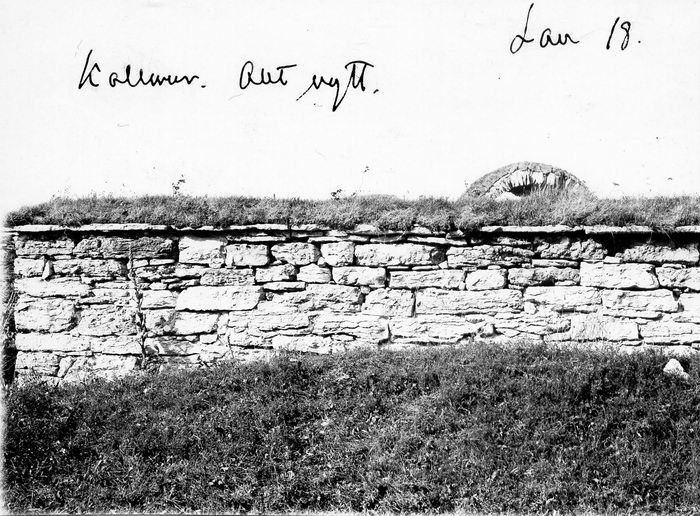 Lau 18.
Kallmur. Allt nytt.